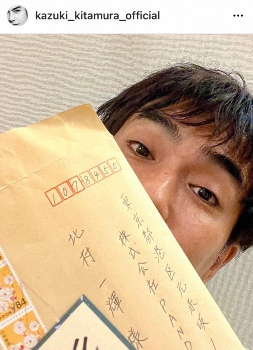 kazuki_kitamura_official
1078450
東京都港区元赤坂
株式会社PAND
北村一輝様
84